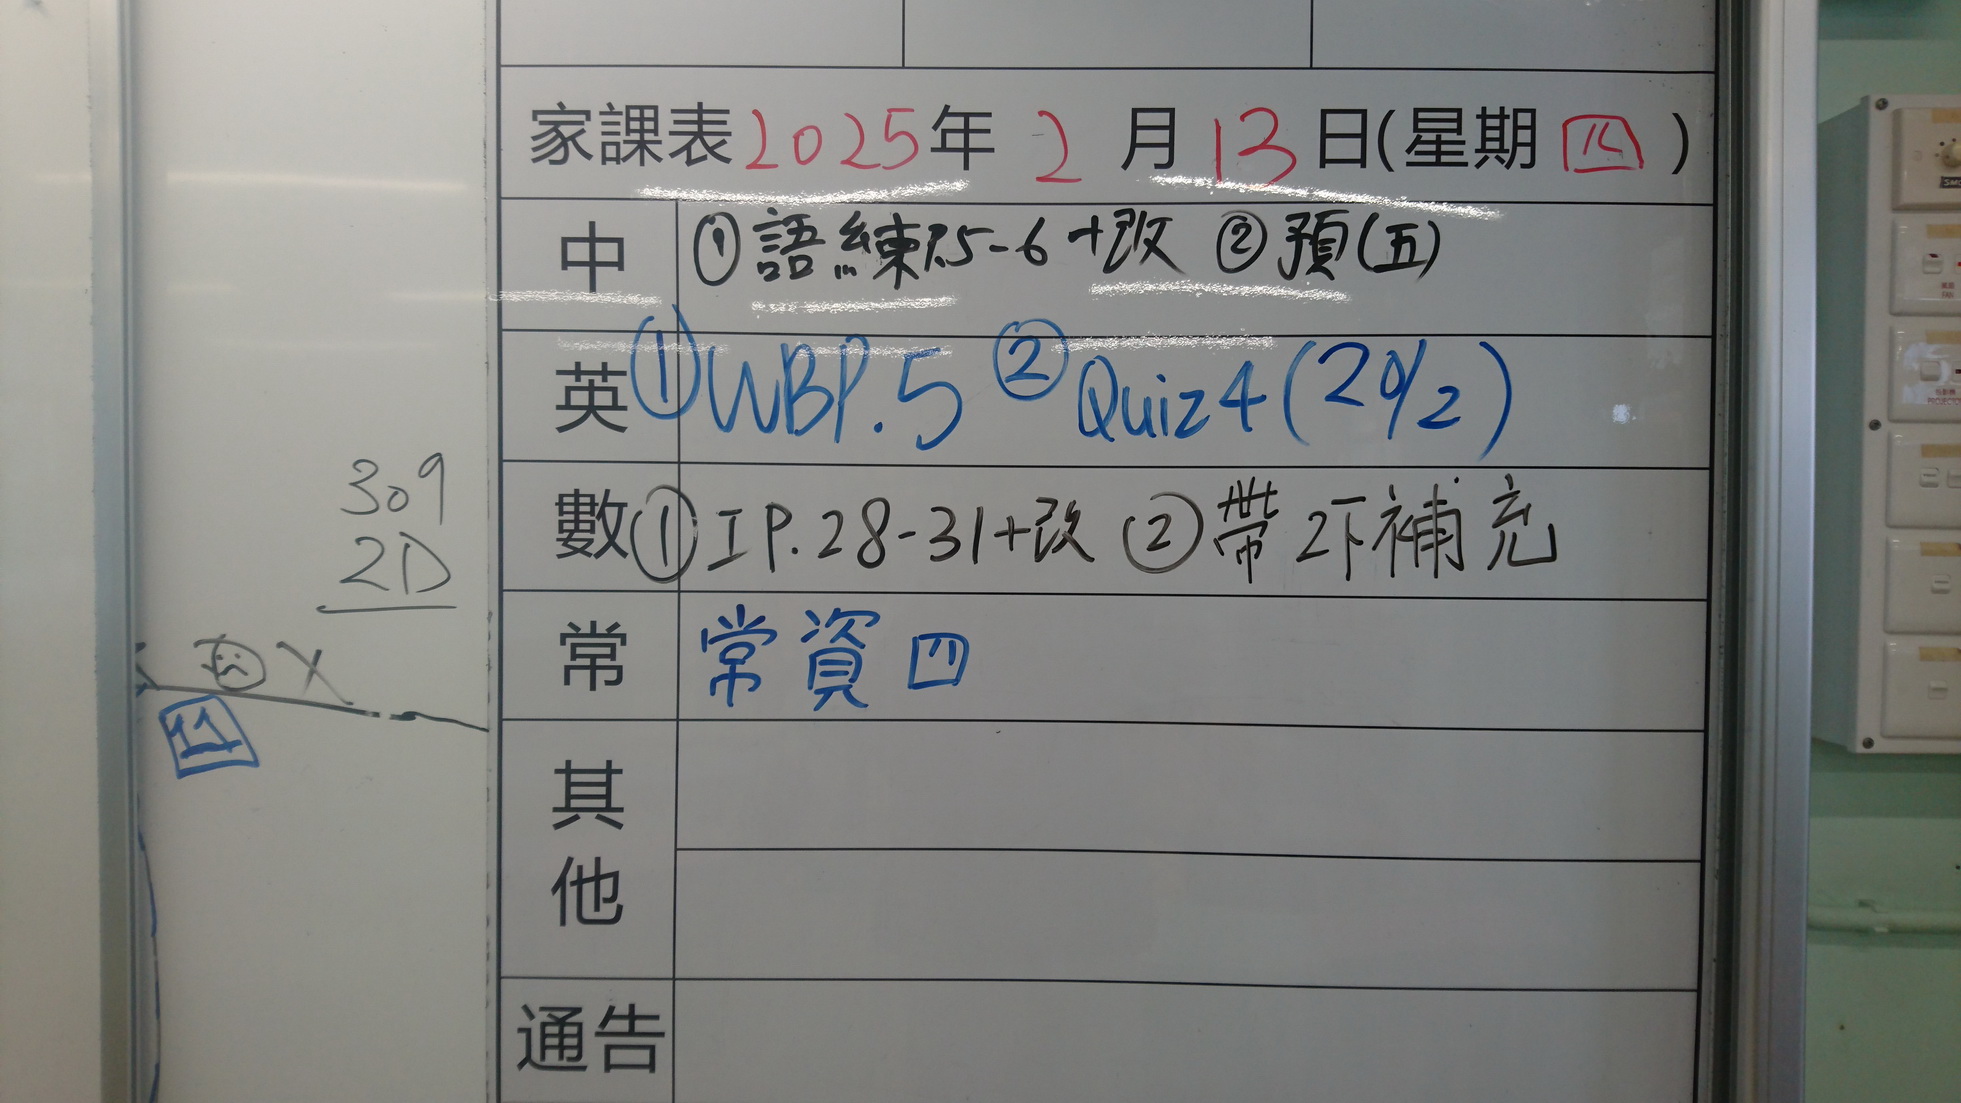 家課表2025年 2 月 13 日(星期 四 )
中 ①語練P.5-6+改 ②預(五)
英 ①WBP.5 ②Quiz4(20/2)
數 ①工P.28-31+改 ②帶2下補充
常 常資四
其他
通告
309
2D
11